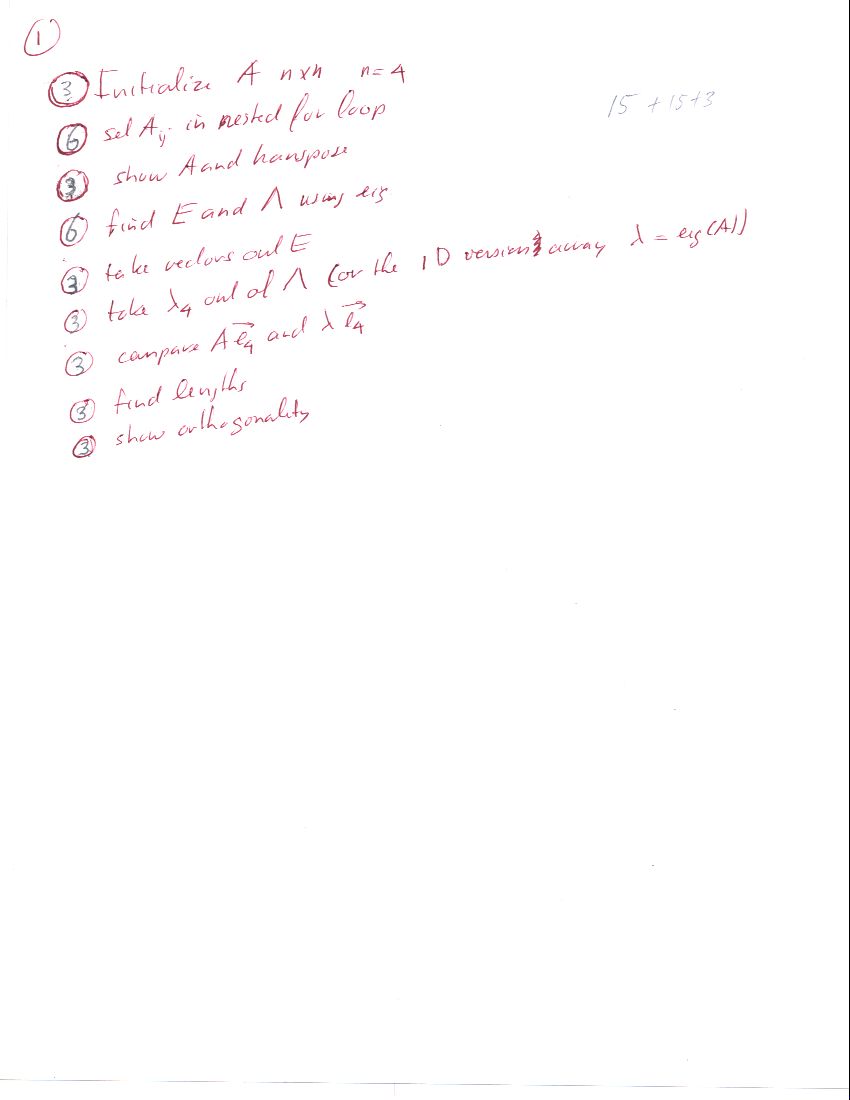 1
3 Initialize A n×n n=4
15 + 15+3
6 set Aij in nested for loop
3 show A and transpose
6 find E and Λ using eig
3 take vectors out E
3 take λ4 out of Λ (or the 1D version array λ = eig(A))
3 compare A e⃗4 and λ e⃗4
3 find lengths
3 show orthogonality